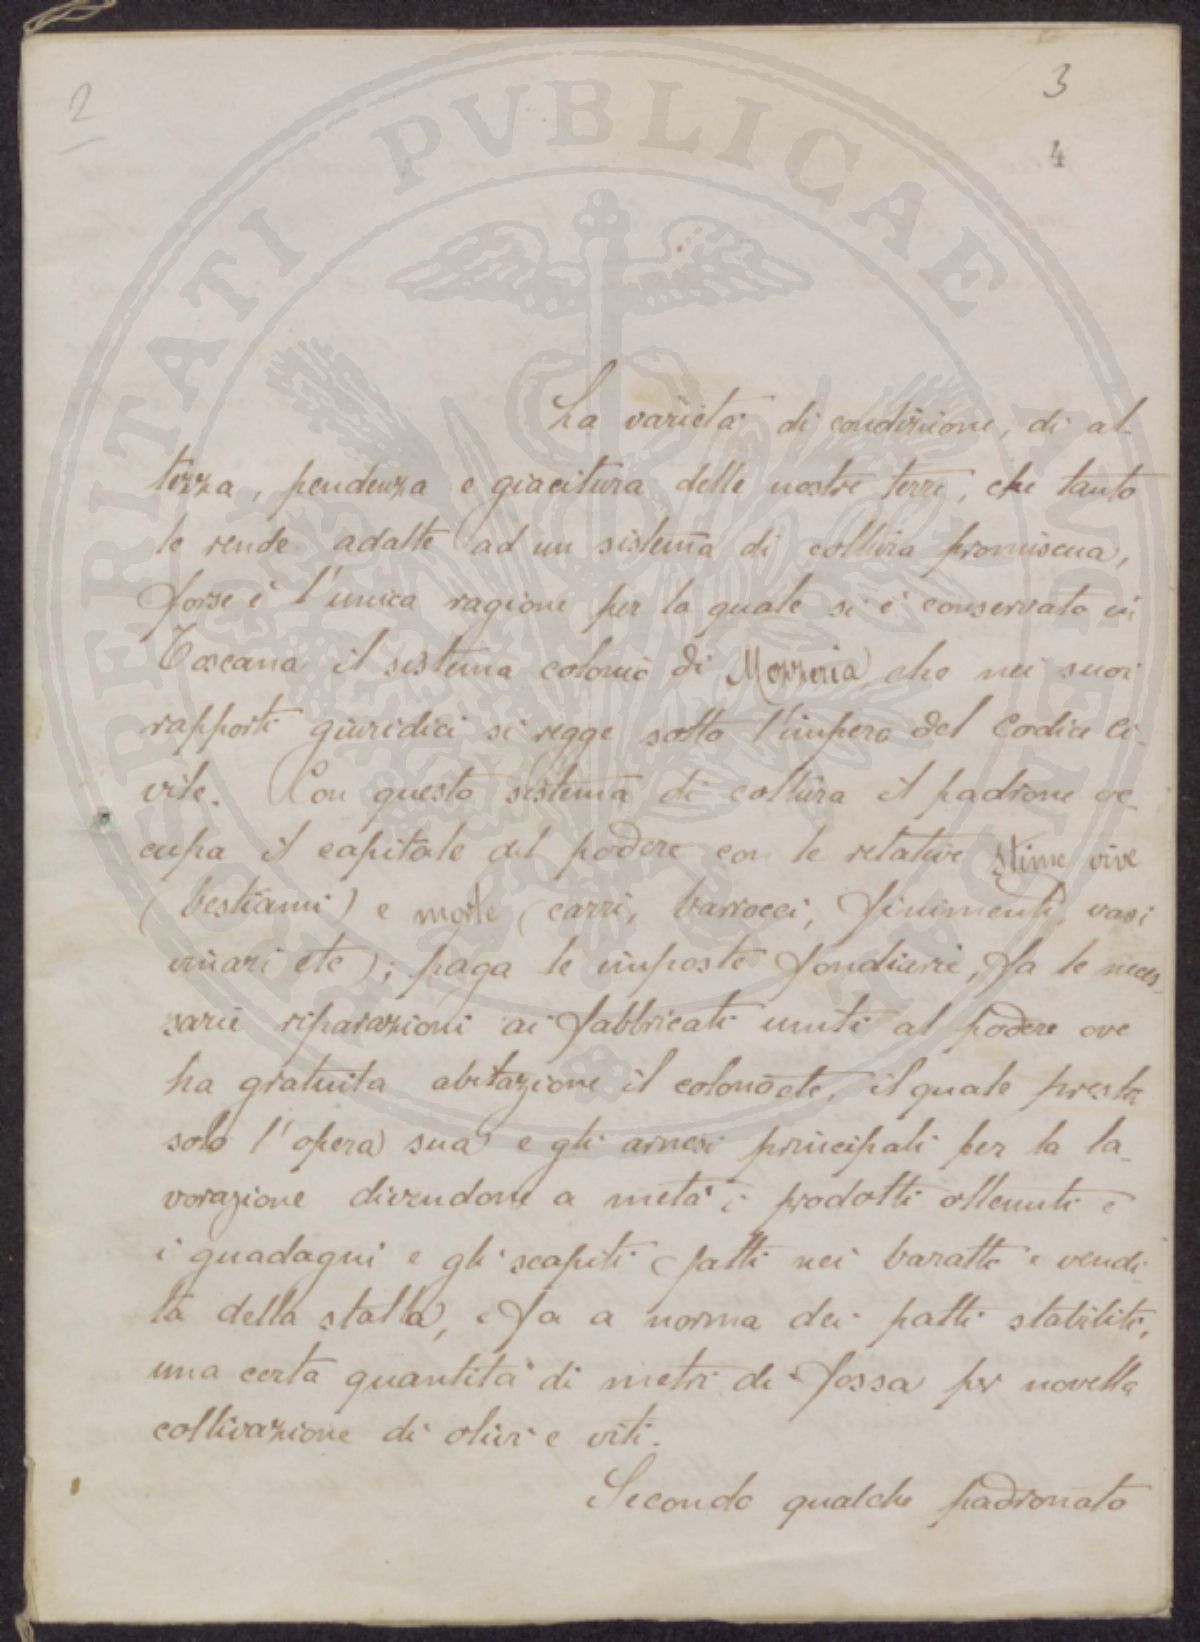 2
3
4
La varietà di condizione, di al-
tezza, pendenza e giacitura delle nostre terre, che tanto
le rende adatte ad un sistema di coltura promiscua,
forse è l'unica ragione per la quale si è conservato in
Toscana il sistema colonico di Mezzeria, che nei suoi
rapporti giuridici si regge sotto l'impero del Codice Ci-
vile. Con questo sistema di coltura il padrone oc-
cupa il capitale del podere con le relative stime vive
(bestiami) e morte (carri, barrocci, finimenti, vasi
vinari etc); paga le imposte fondiarie, fa le neces-
sarie riparazioni ai fabbricati uniti al podere ove
ha gratuita abitazione il colono etc, il quale presta
solo l'opera sua e gli arnesi principali per la la-
vorazione dividendone a metà i prodotti ottenuti e
i guadagni e gli scapiti fatti nei baratti e vendi-
ta della stalla, e fa a norma dei patti stabiliti,
una certa quantità di metri di fossa per novella
coltivazione di olivi e viti.
Secondo qualche padronato
PROSPERITATI PVBLICAE AVGENDAE